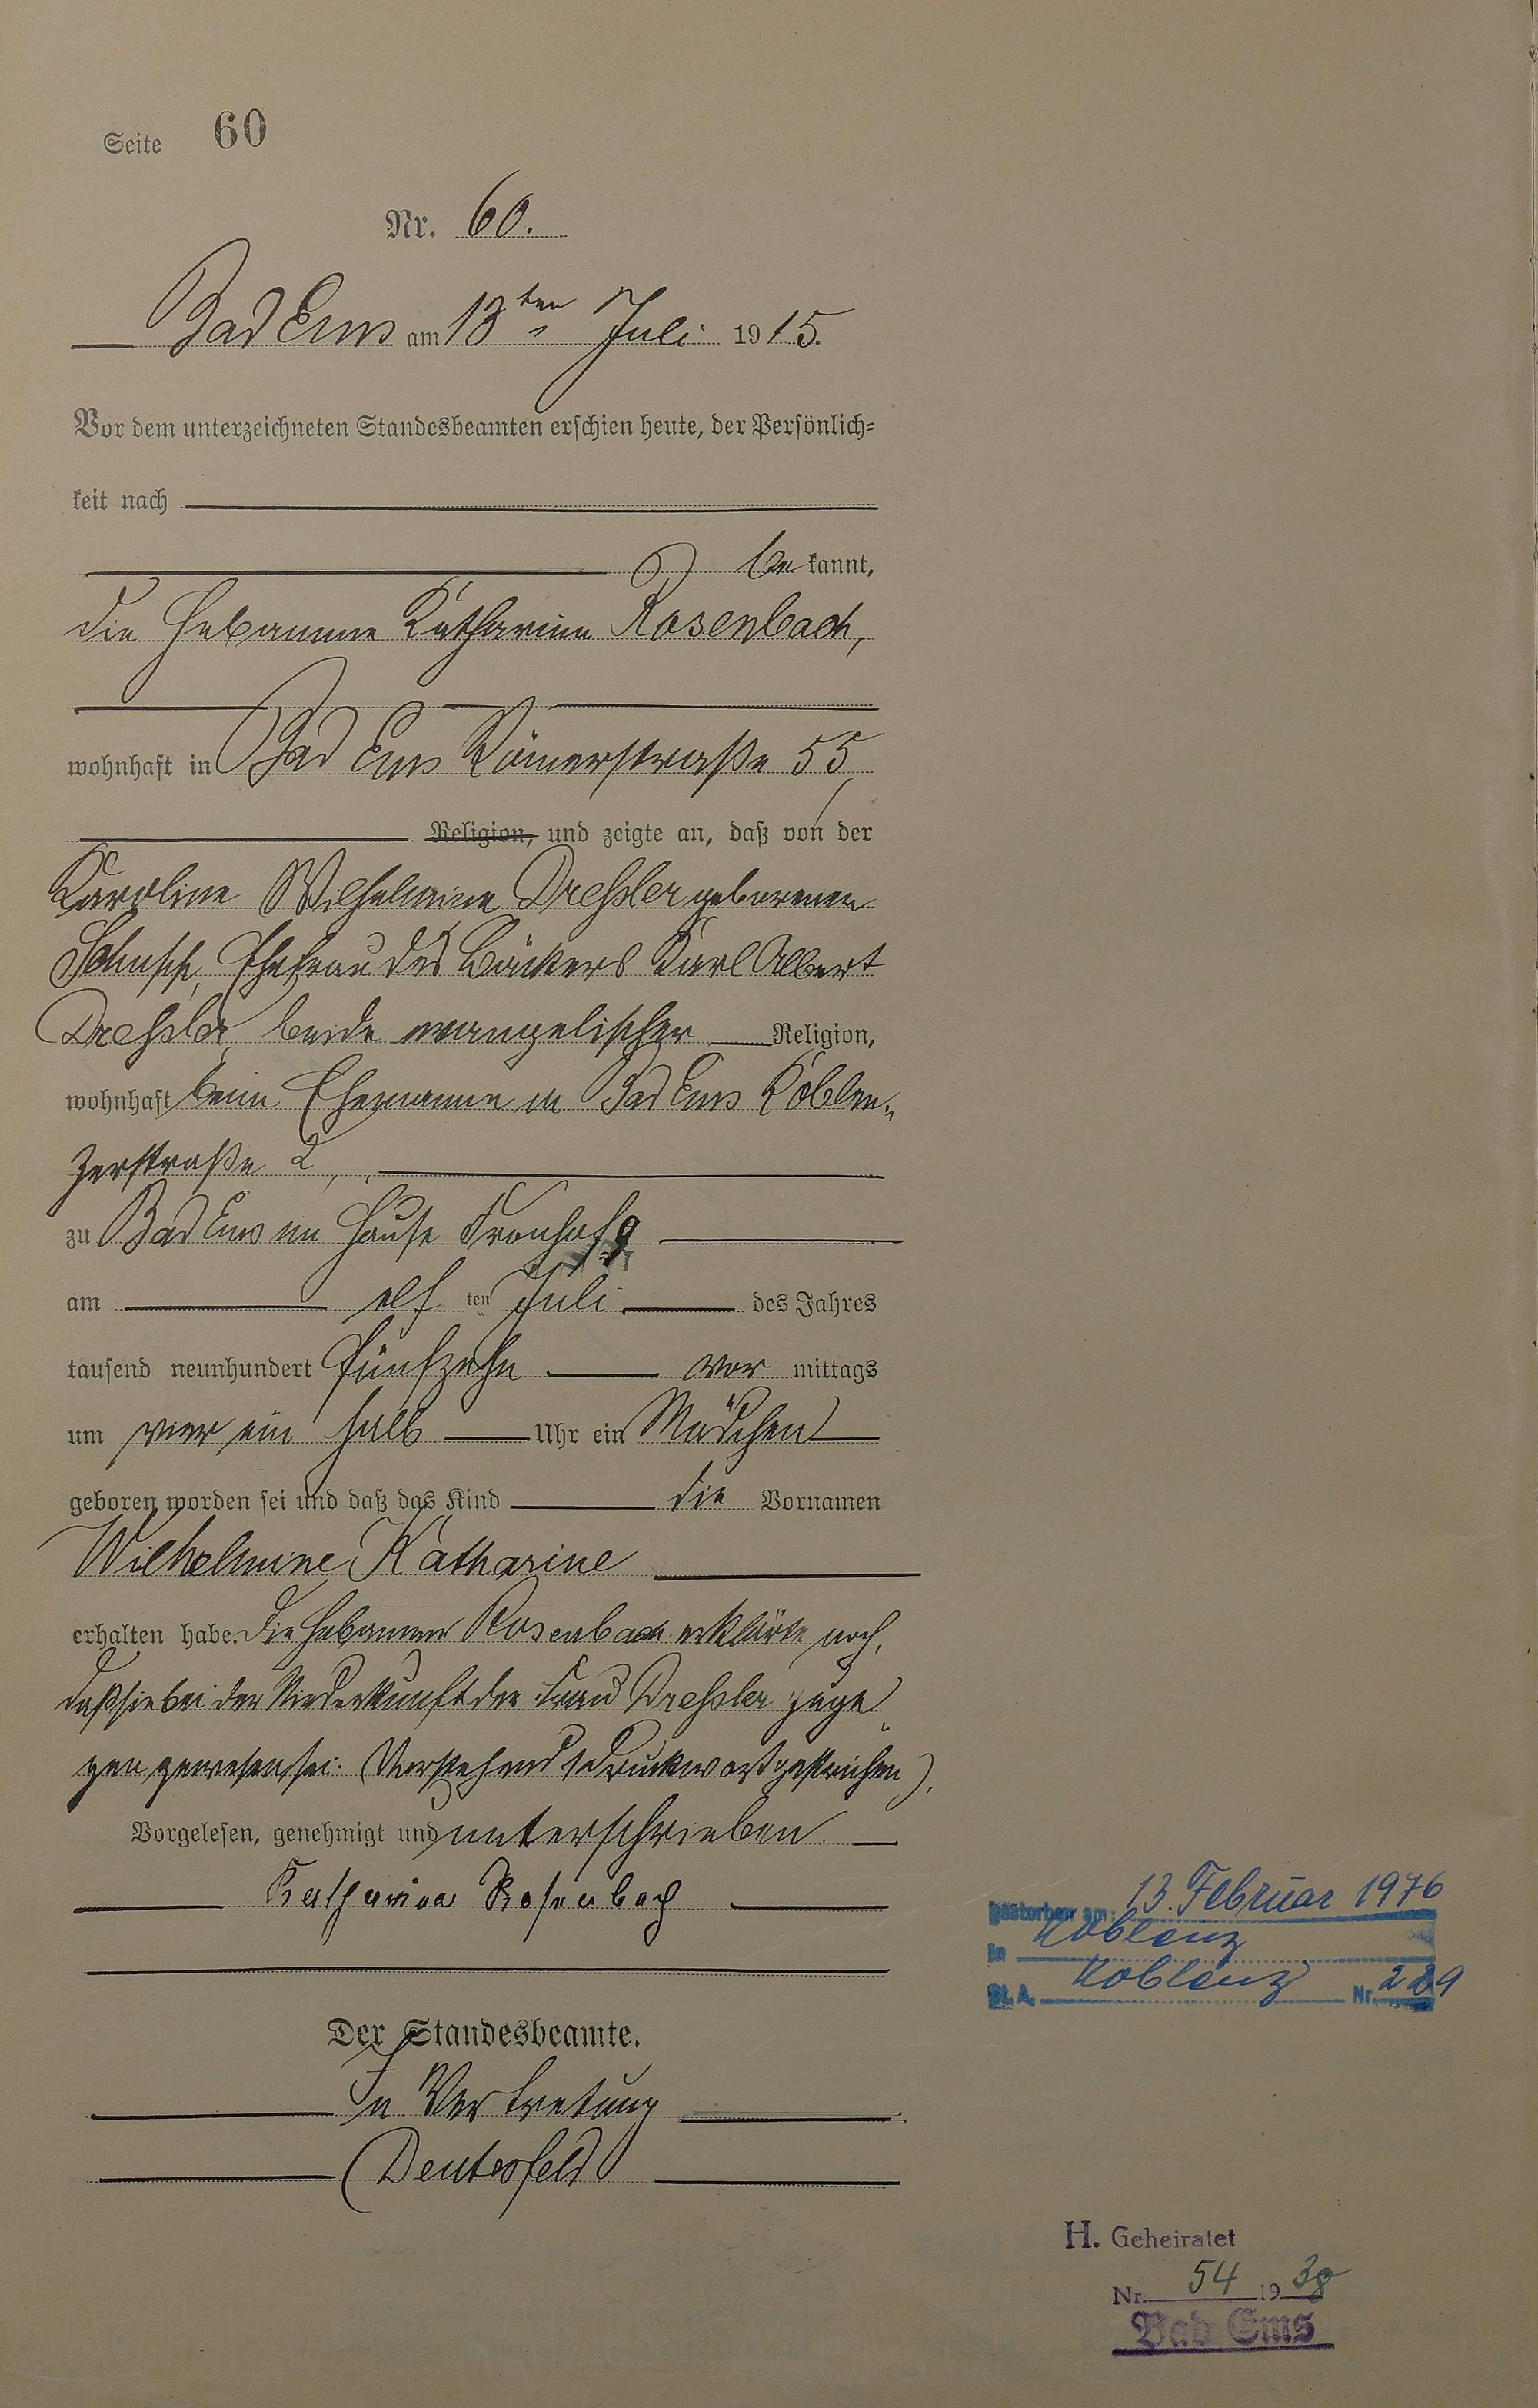 Seite 60
Nr. 60.
Bad Ems am 13ten Juli 1915.
Vor dem unterzeichneten Standesbeamten erschien heute, der Persönlich=
keit nach
be kannt,
die Hebamme Katharina Rosenbach,
wohnhaft in Bad Ems Römerstraße 55,
Religion, und zeigte an, daß von der
Karoline Wilhelmine Dreßler geborenen
Ehefrau des Bäckers Karl Albert
Dreßler, beide evangelischer Religion,
wohnhaft beim Ehemanne in Bad Ems Koblen„
zerstraße 2,
zu Bad Ems im Hause Fronhof 9
am elf ten Juli des Jahres
tausend neunhundert fünfzehn vor mittags
um vier ein halb Uhr ein Mädchen
geboren worden sei und daß das Kind die Vornamen
Wilhelmine Katharine
erhalten habe. Die Hebamme Rosenbach erklärte noch,
daß sie bei der Niederkunft der Frau Dreßler zuge„
gen gewesen sei. (Vorstehend 1 Druckwort gestrichen).
Vorgelesen, genehmigt und unterschrieben.
Katharina Rosenbach
Der Standesbeamte.
In Vertretung
Gestorben am: 13. Februar 1976
in Koblenz
St. A. Koblenz Nr. 229
H. Geheiratet
Nr. 54 1938
Bad Ems